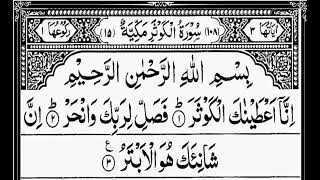 اٰيَاتُهَا ٣ (١٠٨) سُوْرَةُ الْكَوْثَرِ مَكِّيَّةٌ (١٥) رُكُوْعُهَا ١
بِسْمِ اللّٰهِ الرَّحْمٰنِ الرَّحِيْمِ
اِنَّاۤ اَعْطَيْنٰكَ الْكَوْثَرَ ؕ﴿۱﴾ فَصَلِّ لِرَبِّكَ وَانْحَرْ ؕ﴿۲﴾ اِنَّ
شَانِئَكَ هُوَ الْاَبْتَرُ ﴿۳﴾ ع